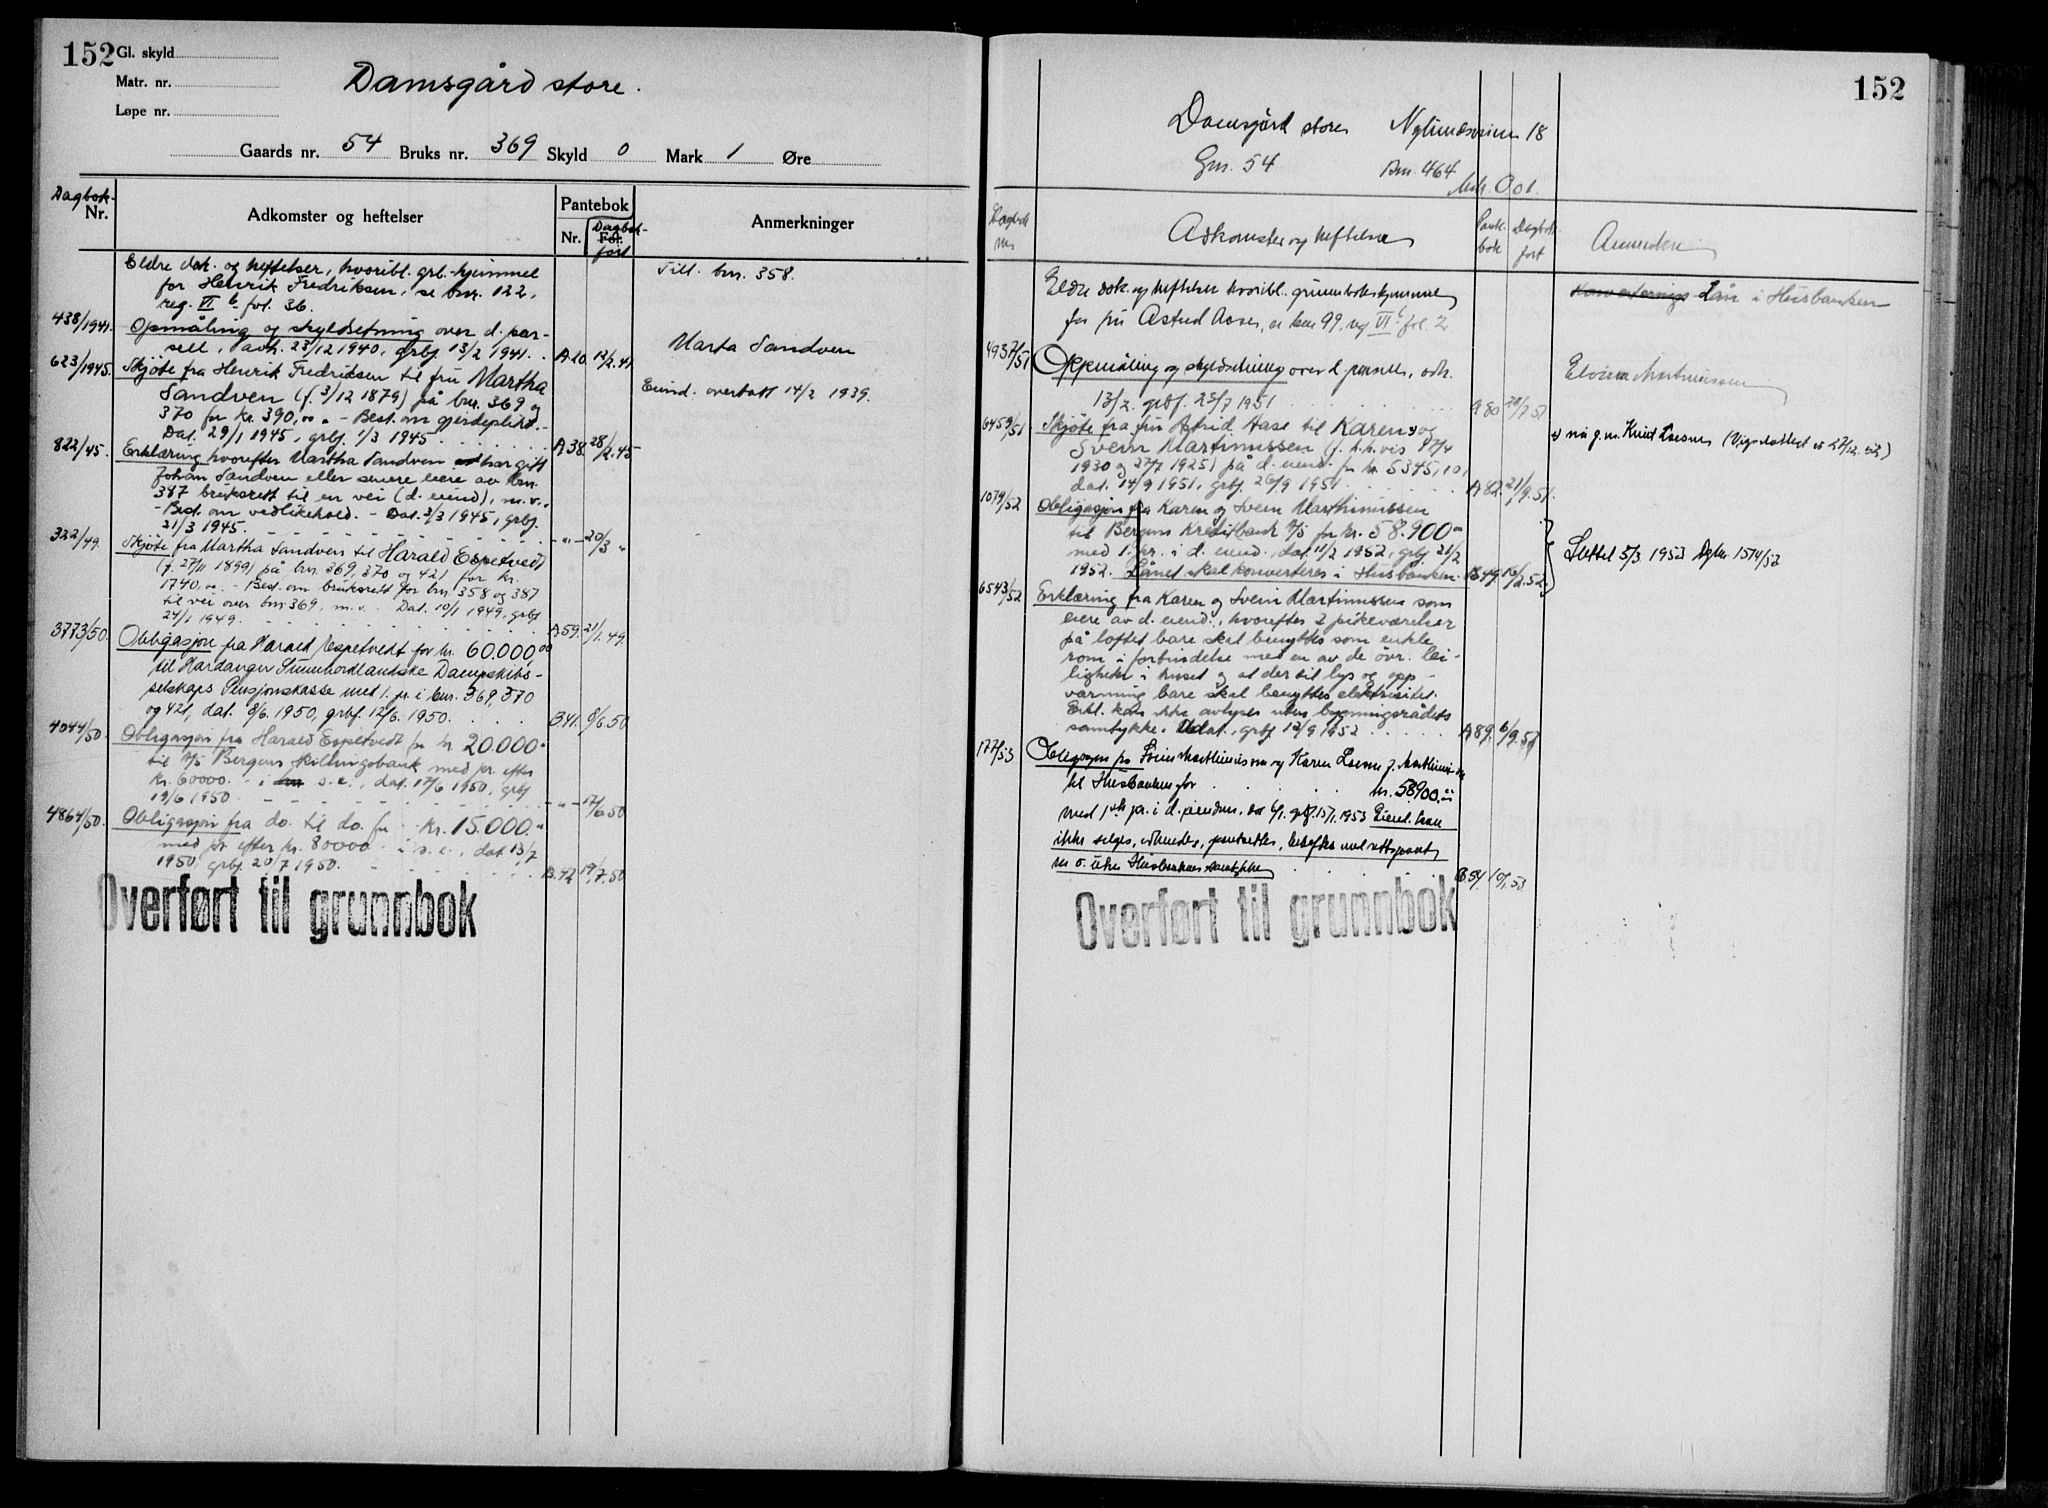 152
Gl. skyld
Matr. nr.
Løpe nr.
Damsgård store.
Gaards nr. 54 Bruks nr. 369 Skyld 0 Mark 1 Øre
Dagbok-
Nr.
Adkomster og heftelser
Pantebok
Nr.
Fol.
Dagbok-
ført
Anmerkninger
Eldre dok. og heftelser, hvoribl. grb.-hjemmel
for Henrik Fredriksen, se bnr. 122,
reg. VI b fol. 36.
Till. bnr. 358.
438/1941. Opmåling og skyldsetning over d. par-
sell, avh. 23/12 1940, grbf. 13/2 1941. A.20. 12/2.41
Marta Sandven
623/1945. Skjøte fra Henrik Fredriksen til fru Martha
Sandven (f. 3/12 1879) på bnr. 369 og
370 for kr. 390,00. - Best. om gjerdeplikt. -
Dat. 29/1 1945, grbf. 1/3 1945. A.38. 28/2.45
Eiend. overtatt 14/2 1939.
822/45. Erklæring hvorefter Martha Sandven har gitt
Johan Sandven eller senere eiere av bnr.
387 bruksrett til en vei (d. eiend), m.v.
- Best. om vedlikehold. - Dat. 2/3 1945, grbf.
21/3 1945. - " - 20/3 "
322/49. Skjøte fra Martha Sandven til Harald Espetvedt
(f. 27/11 1899) på bnr. 369, 370 og 421 for kr.
1740,00. - Best. om bruksrett for bnr. 358 og 387
til vei over bnr. 369, m.v. Dat. 10/1 1949, grbf
24/1 1949. A.59. 21/1.49.
3773/50. Obligasjon fra Harald Espetvedt for kr. 60.000,00
til Hardanger Sunnhordlandske Dampskibs-
selskaps Pensjonskasse med 1. pr. i bnr. 369, 370
og 421, dat. 8/6. 1950, grbf. 12/6. 1950. B.41. 9/6.50
4044/50. Obligasjon fra Harald Espetvedt for kr. 20.000.-
til A/S Bergens Skillingsbank med pr. efter
kr. 60000.- i s.e., dat. 17/6 1950, grbf
19/6 1950. - " - 17/6.50
4864/50. Obligasjon fra do. til do. for kr. 15.000.-
med pr. efter kr. 80000.- i s.e., dat. 13/7
1950, grbf. 20/7 1950. B.42 19/7.50
Overført til grunnbok
152
Damsgård store
Gnr. 54 Bnr. 464
Mrk. 0.01.
Dagbok
nr.
Adkomster og heftelser
Pante-
bok
Dagbok
ført
Anmerkn.
Eldre dok. og heftelser hvoribl. grunnbokshjemmel
for fru Astrid Aase, se bnr. 99, reg VI b fol. 2
Lån i Husbanken
4937/51 Oppmåling og skyldsetning over d. parsell, avh.
13/2. grbf. 25/7 1951 A 80
Martinussen
6459/51. Skjøte fra fru Astrid Aase til Karen og
Svein Martinussen (f. h.h.vis 17/4
1930 og 27/7 1925) på d. eiend. for kr. 5345,10,
dat. 14/9 1951, grbf. 26/9 1951. A.82. 21/9.51.
nå g.m. Knud Loesnes (Vigselattest av 27/12. 52)
1079/52 Obligasjon fra Karen og Svein Marthinussen
til Bergens Kreditbank A/S for kr. 58.900,00
med 1. pr. i d. eiend., dat. 11/2 1952, grbf. 21/2
1952. Lånet skal konverteres i Husbanken. B.49. 16/2.52.
Slettet 5/3 1953 Dgbnr. 1514/53
6543/52 Erklæring fra Karen og Svein Martinussen som
eiere av d. eiend., hvorefter 2 pikeværelser
på loftet bare skal benyttes som enkle
rom i forbindelse med en av de øvr. lei-
ligheter i huset og at der til lys og opp-
varming bare skal benyttes elektrisitet.
Erkl. kan ikke avlyses uten bygningsrådets
samtykke. Udat., grbf. 12/9 1952. A.89.
177/53 Obligasjon fra Svein Marthinussen og Karen
til Husbanken for kr. 58900.-
med 1ste pr. i d. eiendom. dat 6/1. grbf. 15/1. 1953 Eiend. kan
ikke selges, pantsettes, beheftes med
uten Husbankens samtykke B.54. 10/1.53
Overført til grunnbok